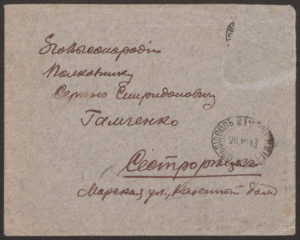 Его Высокородію
Полковнику
Сергѣю Спиридоновичу
Гамченко
Сестрорѣцкъ
Морская ул., Казенный домъ